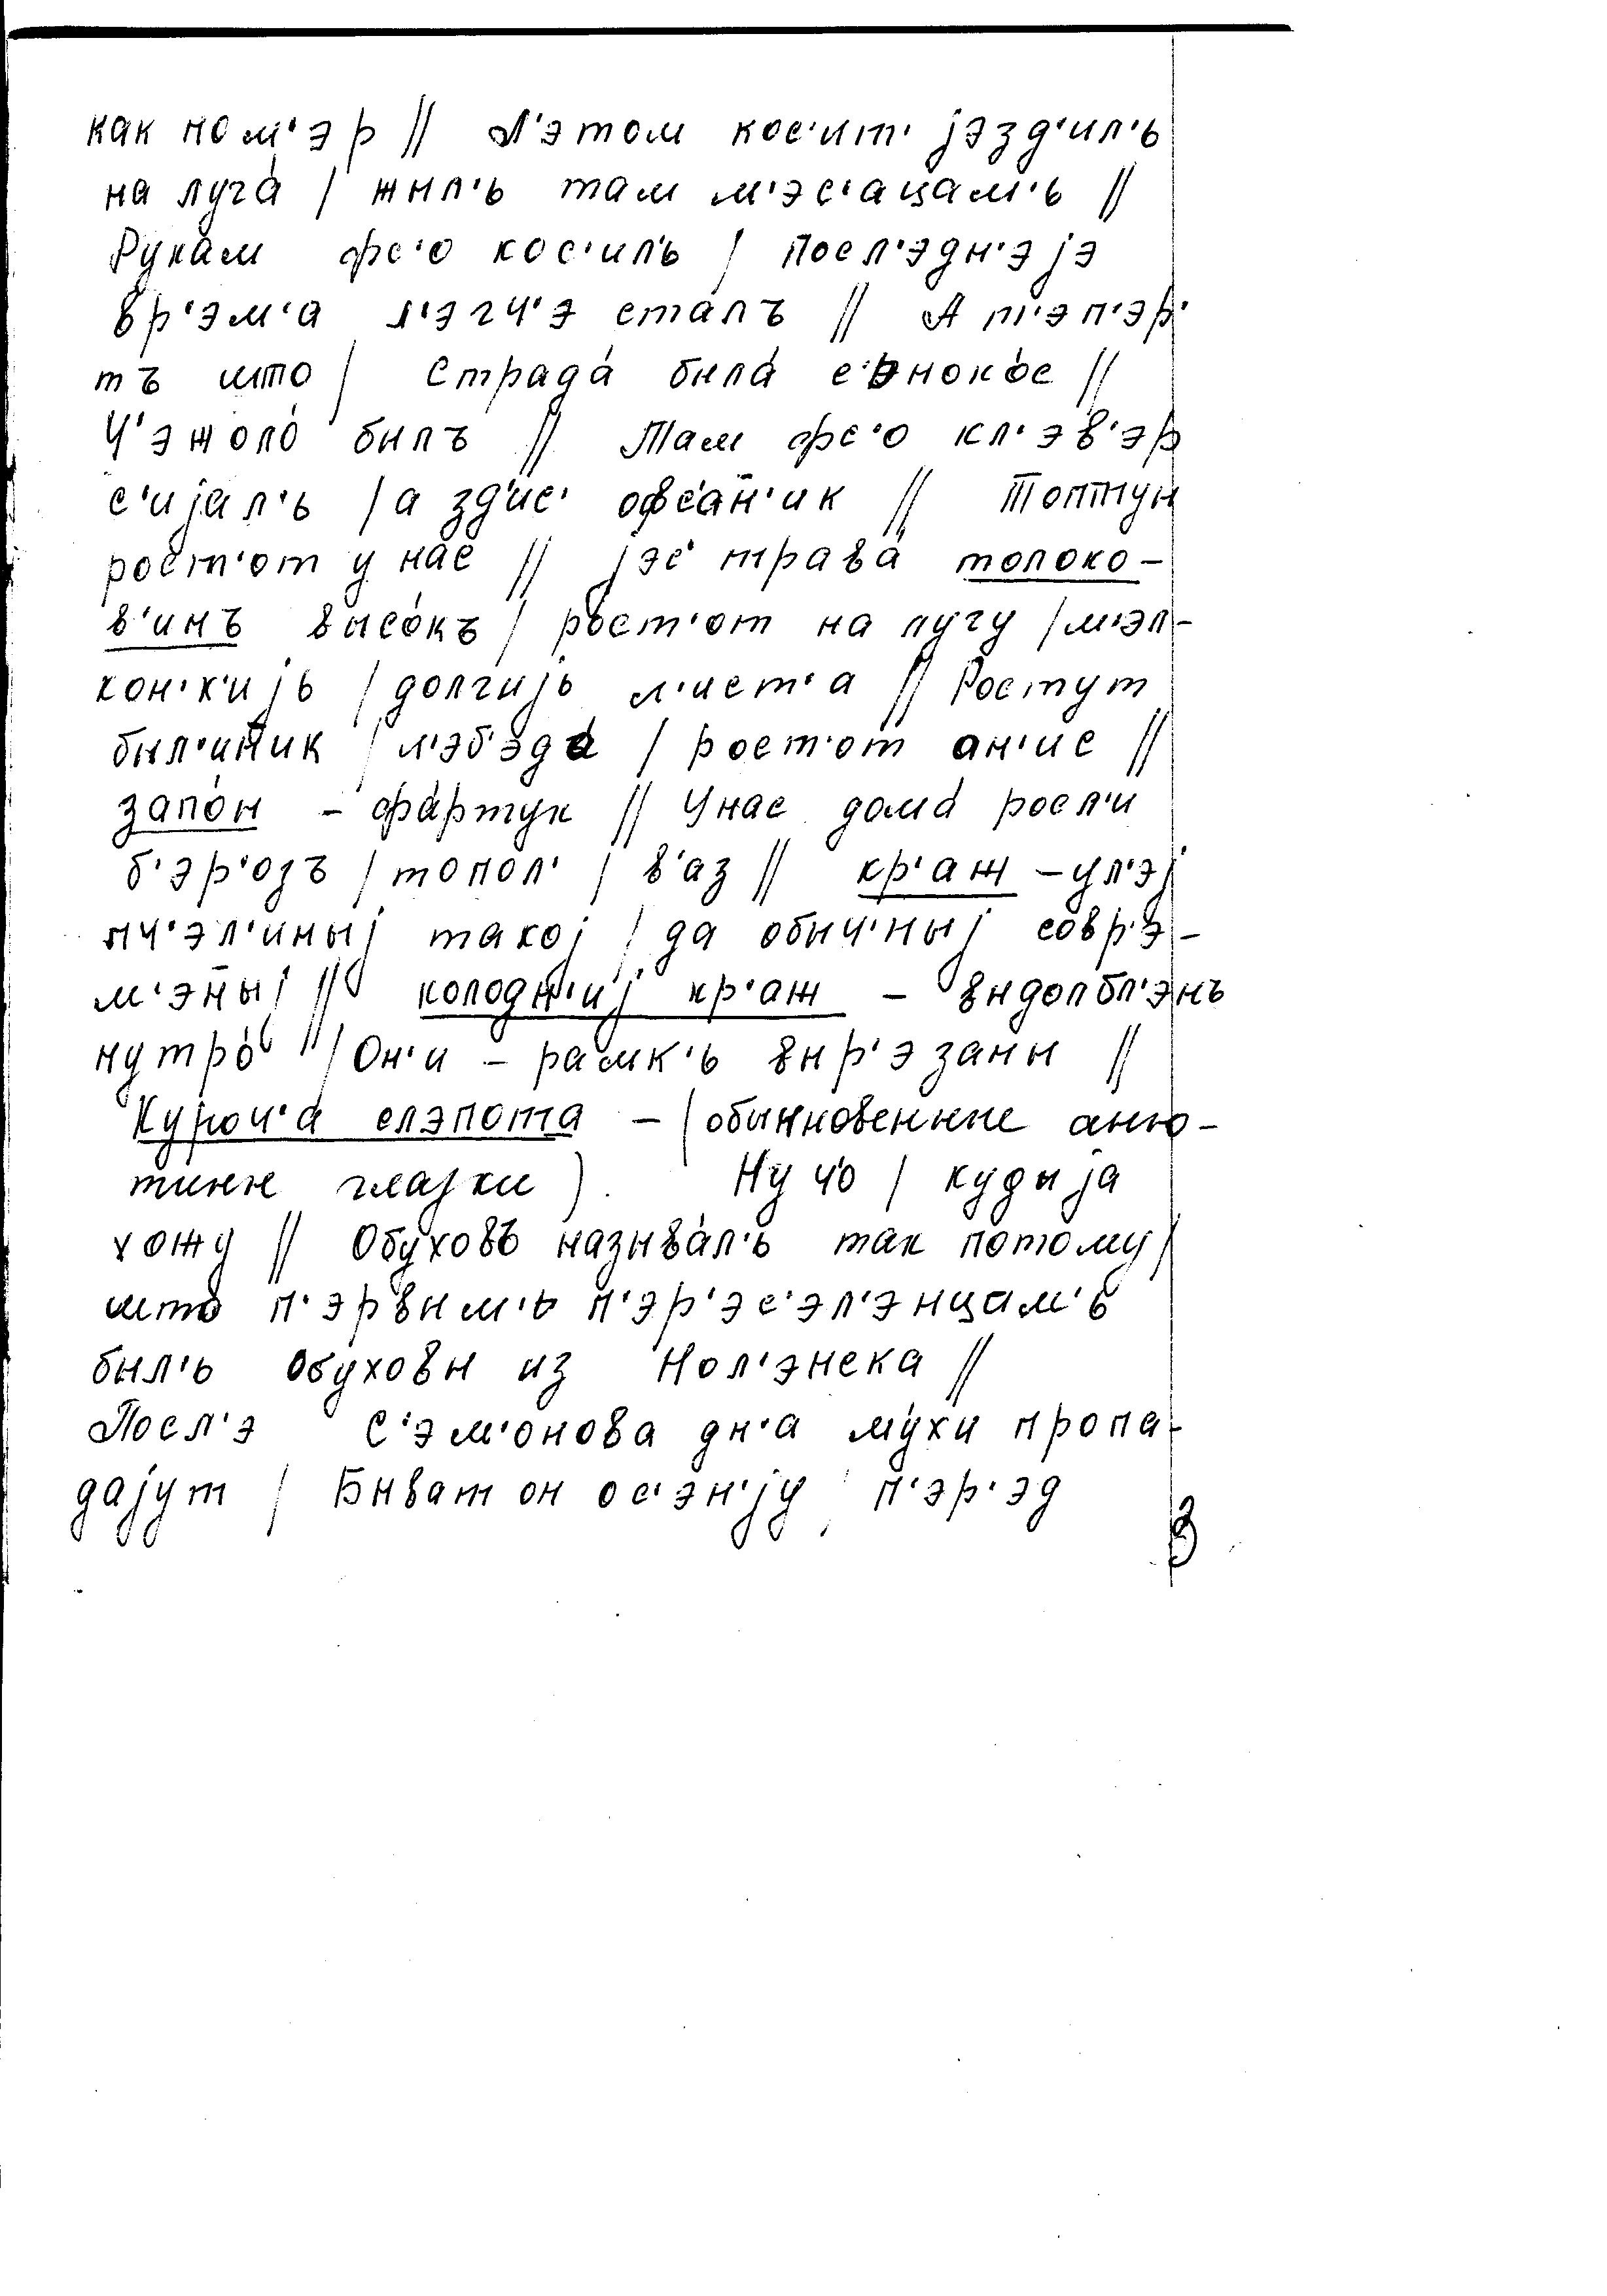 как ном'эр // Л'этом кос'ит' jэзд'ил'ь
на луга́ / жыл'ь там м'эс'ацам'ь //
Рука́м фс'о кос'ил'ь / Посл'эдн'эjэ
вр'эм'а л'эгч'э ста́лъ // А т'эп'эр'
тъ што / Страда́ была́ с'эноко́с //
Ч'эжоло́ былъ // Там фс'о кл'эв'эр
с'иjал'ь / а зд'ис' офс'ан'ик // Топтун
рост'от у нас // jэс' трава́ толоко-
в'инъ высо́къ / рост'от на лугу / м'эл-
кон'к'иjь / долгиjь л'ист'а // Ростут
был'иник / л'эб'эда́ / рост'от ан'ис //
запо́н - фа́ртук // У нас дома́ росл'и
б'эр'озъ / топол' / в'аз // кр'аж - ул'эj
пч'эл'иныj такоj / да обыч'ныj совр'э-
м'эныj // колодн'иj кр'аж - выдолбл'энъ
нутро́ / Он'и - рамк'ь выр'эзаны //
Куроч'а слэпота - (обыкновенные аню-
тины глазки). Ну ч'о / куды jа
хожу // Обуховъ называ́л'ь так потому /
што п'эрвым'ь п'эр'эс'эл'энцам'ь
был'ь Обуховы из Нол'энска //
Посл'э С'эм'онова дн'а му́хи пропа-
даjут / Быват он ос'эн'jу п'эр'эд
3